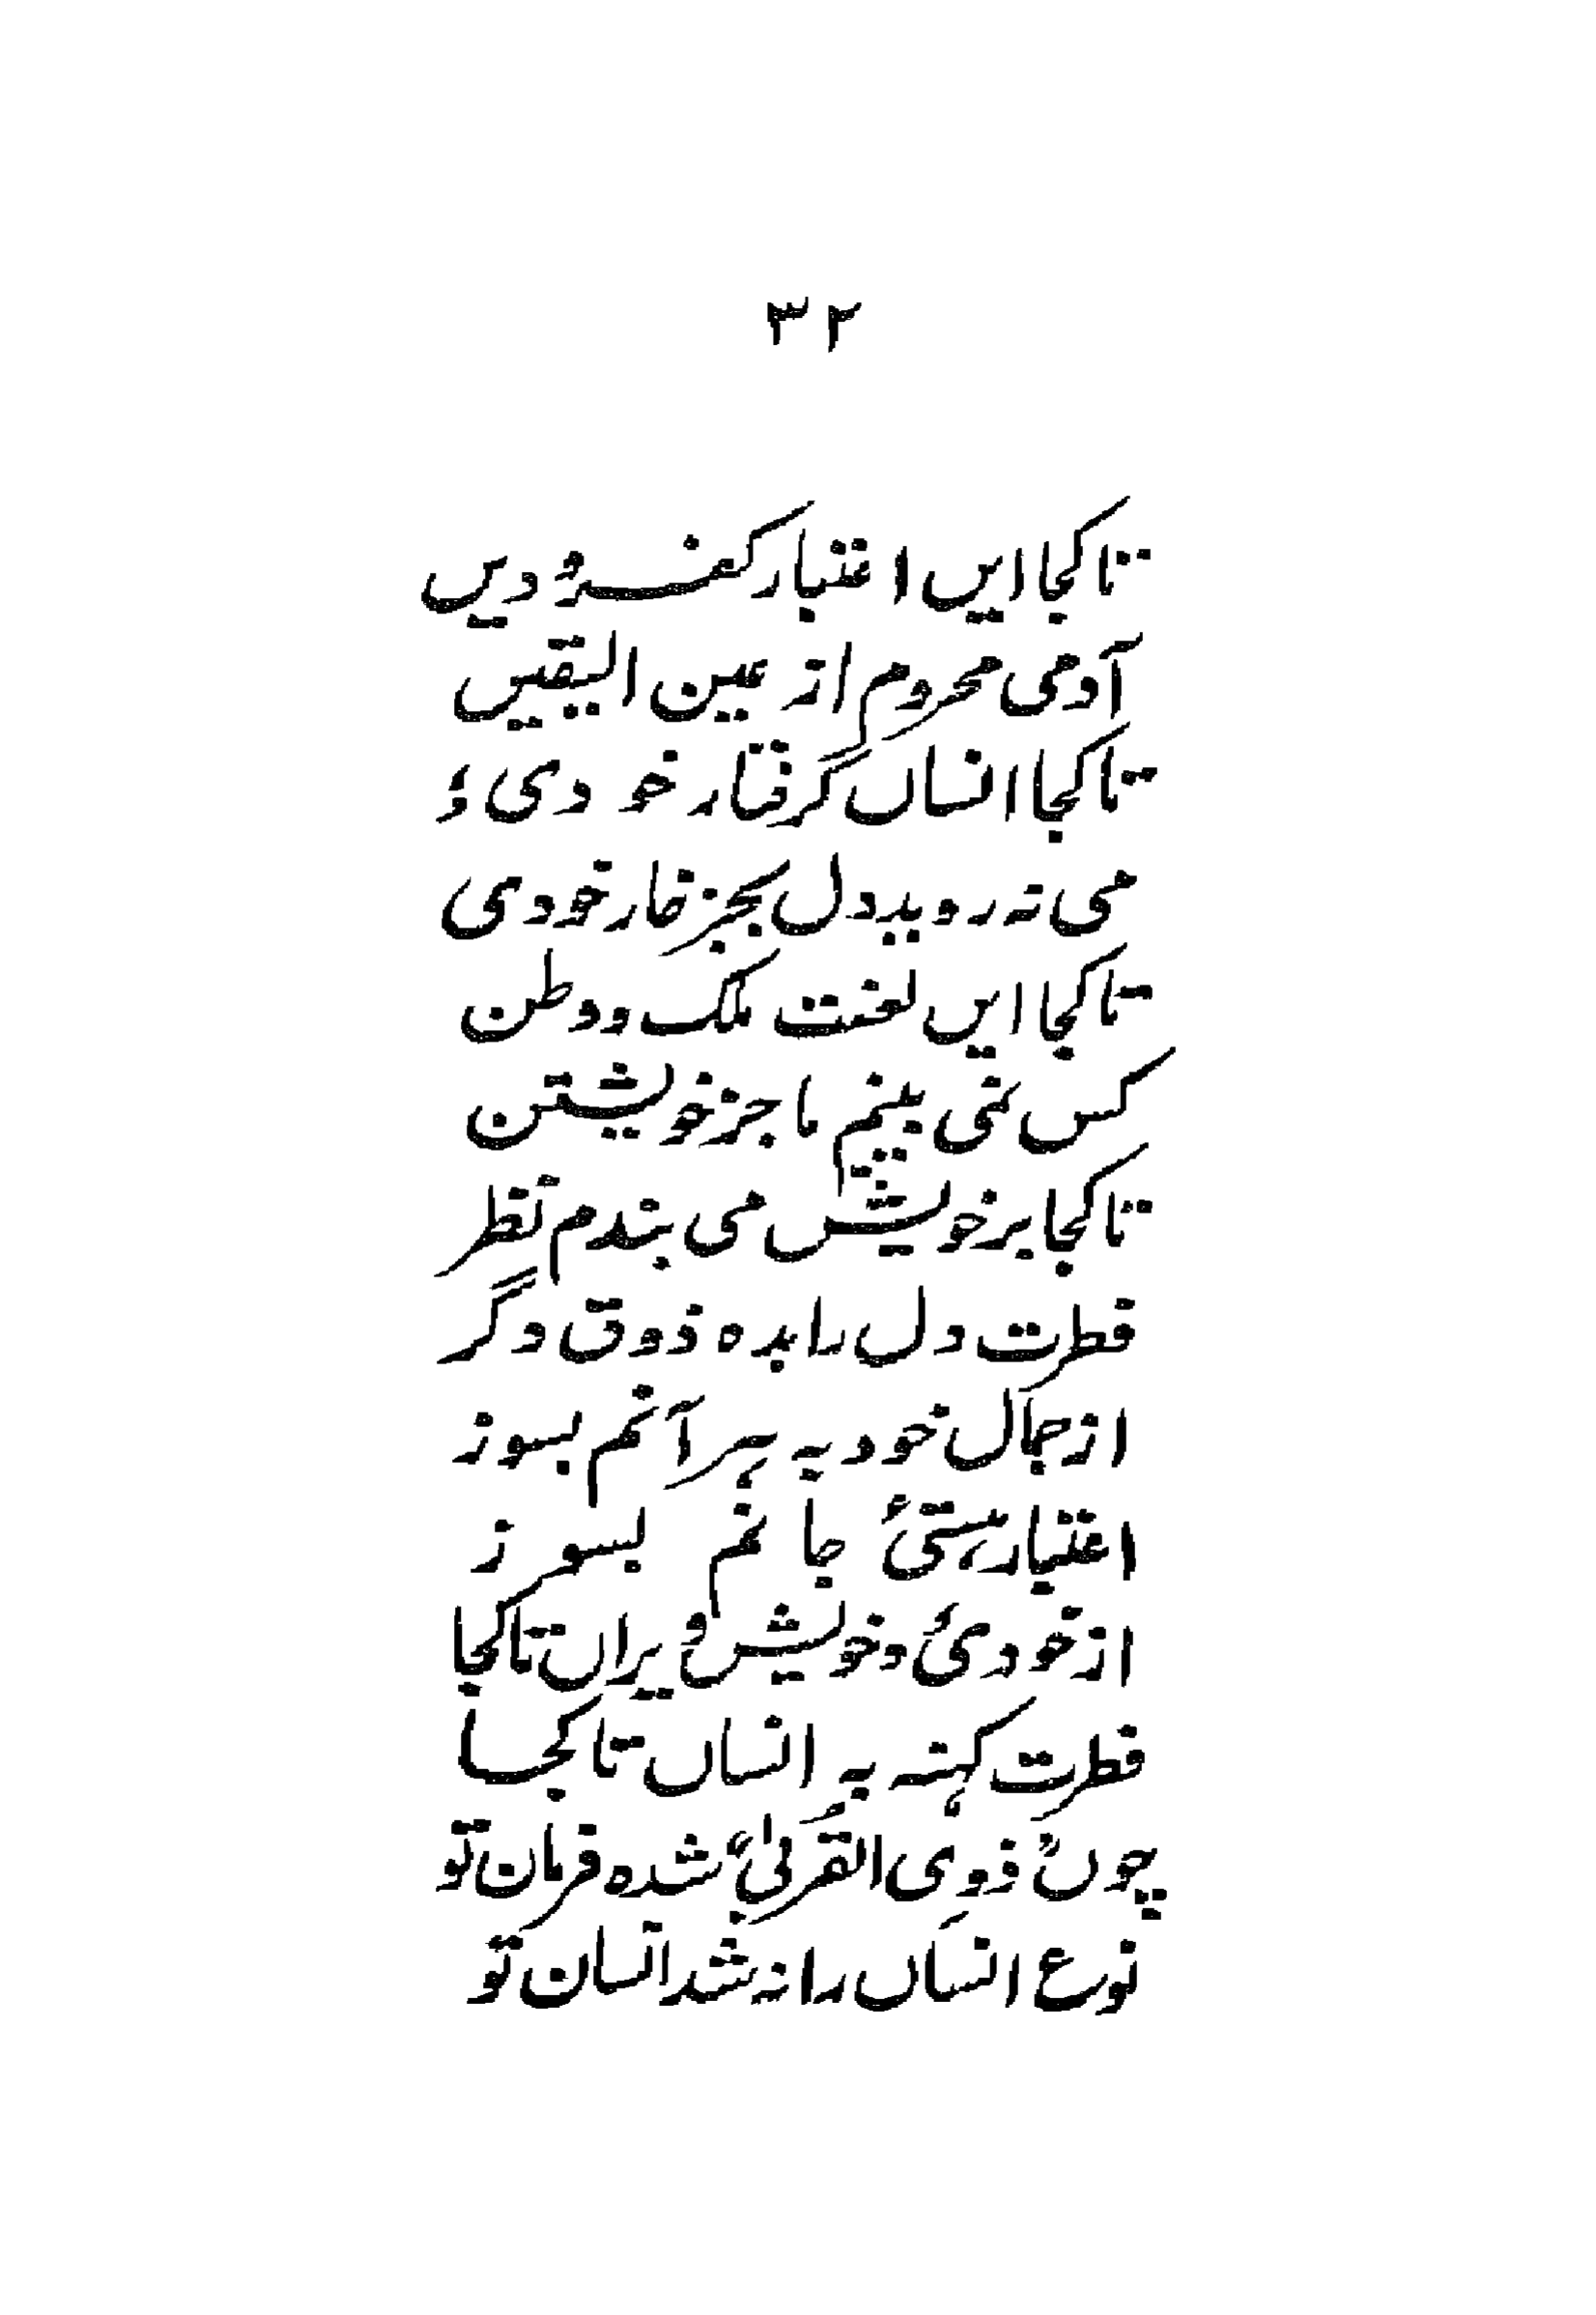 ۳۲
تا کجا ایں اعتبار کفر و دیں
آدمی محروم از عین الیقیں
تا کجا انساں گرفتار خودی؛
می نہ روید دل بجز خار خودی
تا کجا ایں لعنت ملک و وطن
کس نمی بینم ما جز خویشتن
تا کجا بر خویش می بندم نظر
فطرت دل را بدہ ذوق دگر
از جمال خود بہ ہر آنم بسوز
اعتبار ہستئ جانم بسوز
از خودئ و خویش ویراں تا کجا
فطرت کہنہ بہ انساں تا کجا
چوں ذوی القربیٰ شدہ فرمان تو
نوع انساں را نہ شد انسان تو